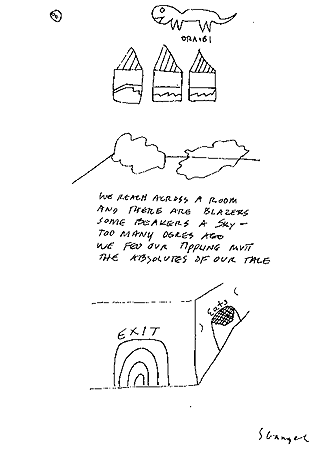 ORAIBI
WE REACH ACROSS A ROOM
AND THERE ARE BLAZERS
SOME BEAKERS A SKY —
TOO MANY OGRES AGO
WE FED OUR TIPPLING MUTT
THE ABSOLUTES OF OUR TALE
EATS
EXIT